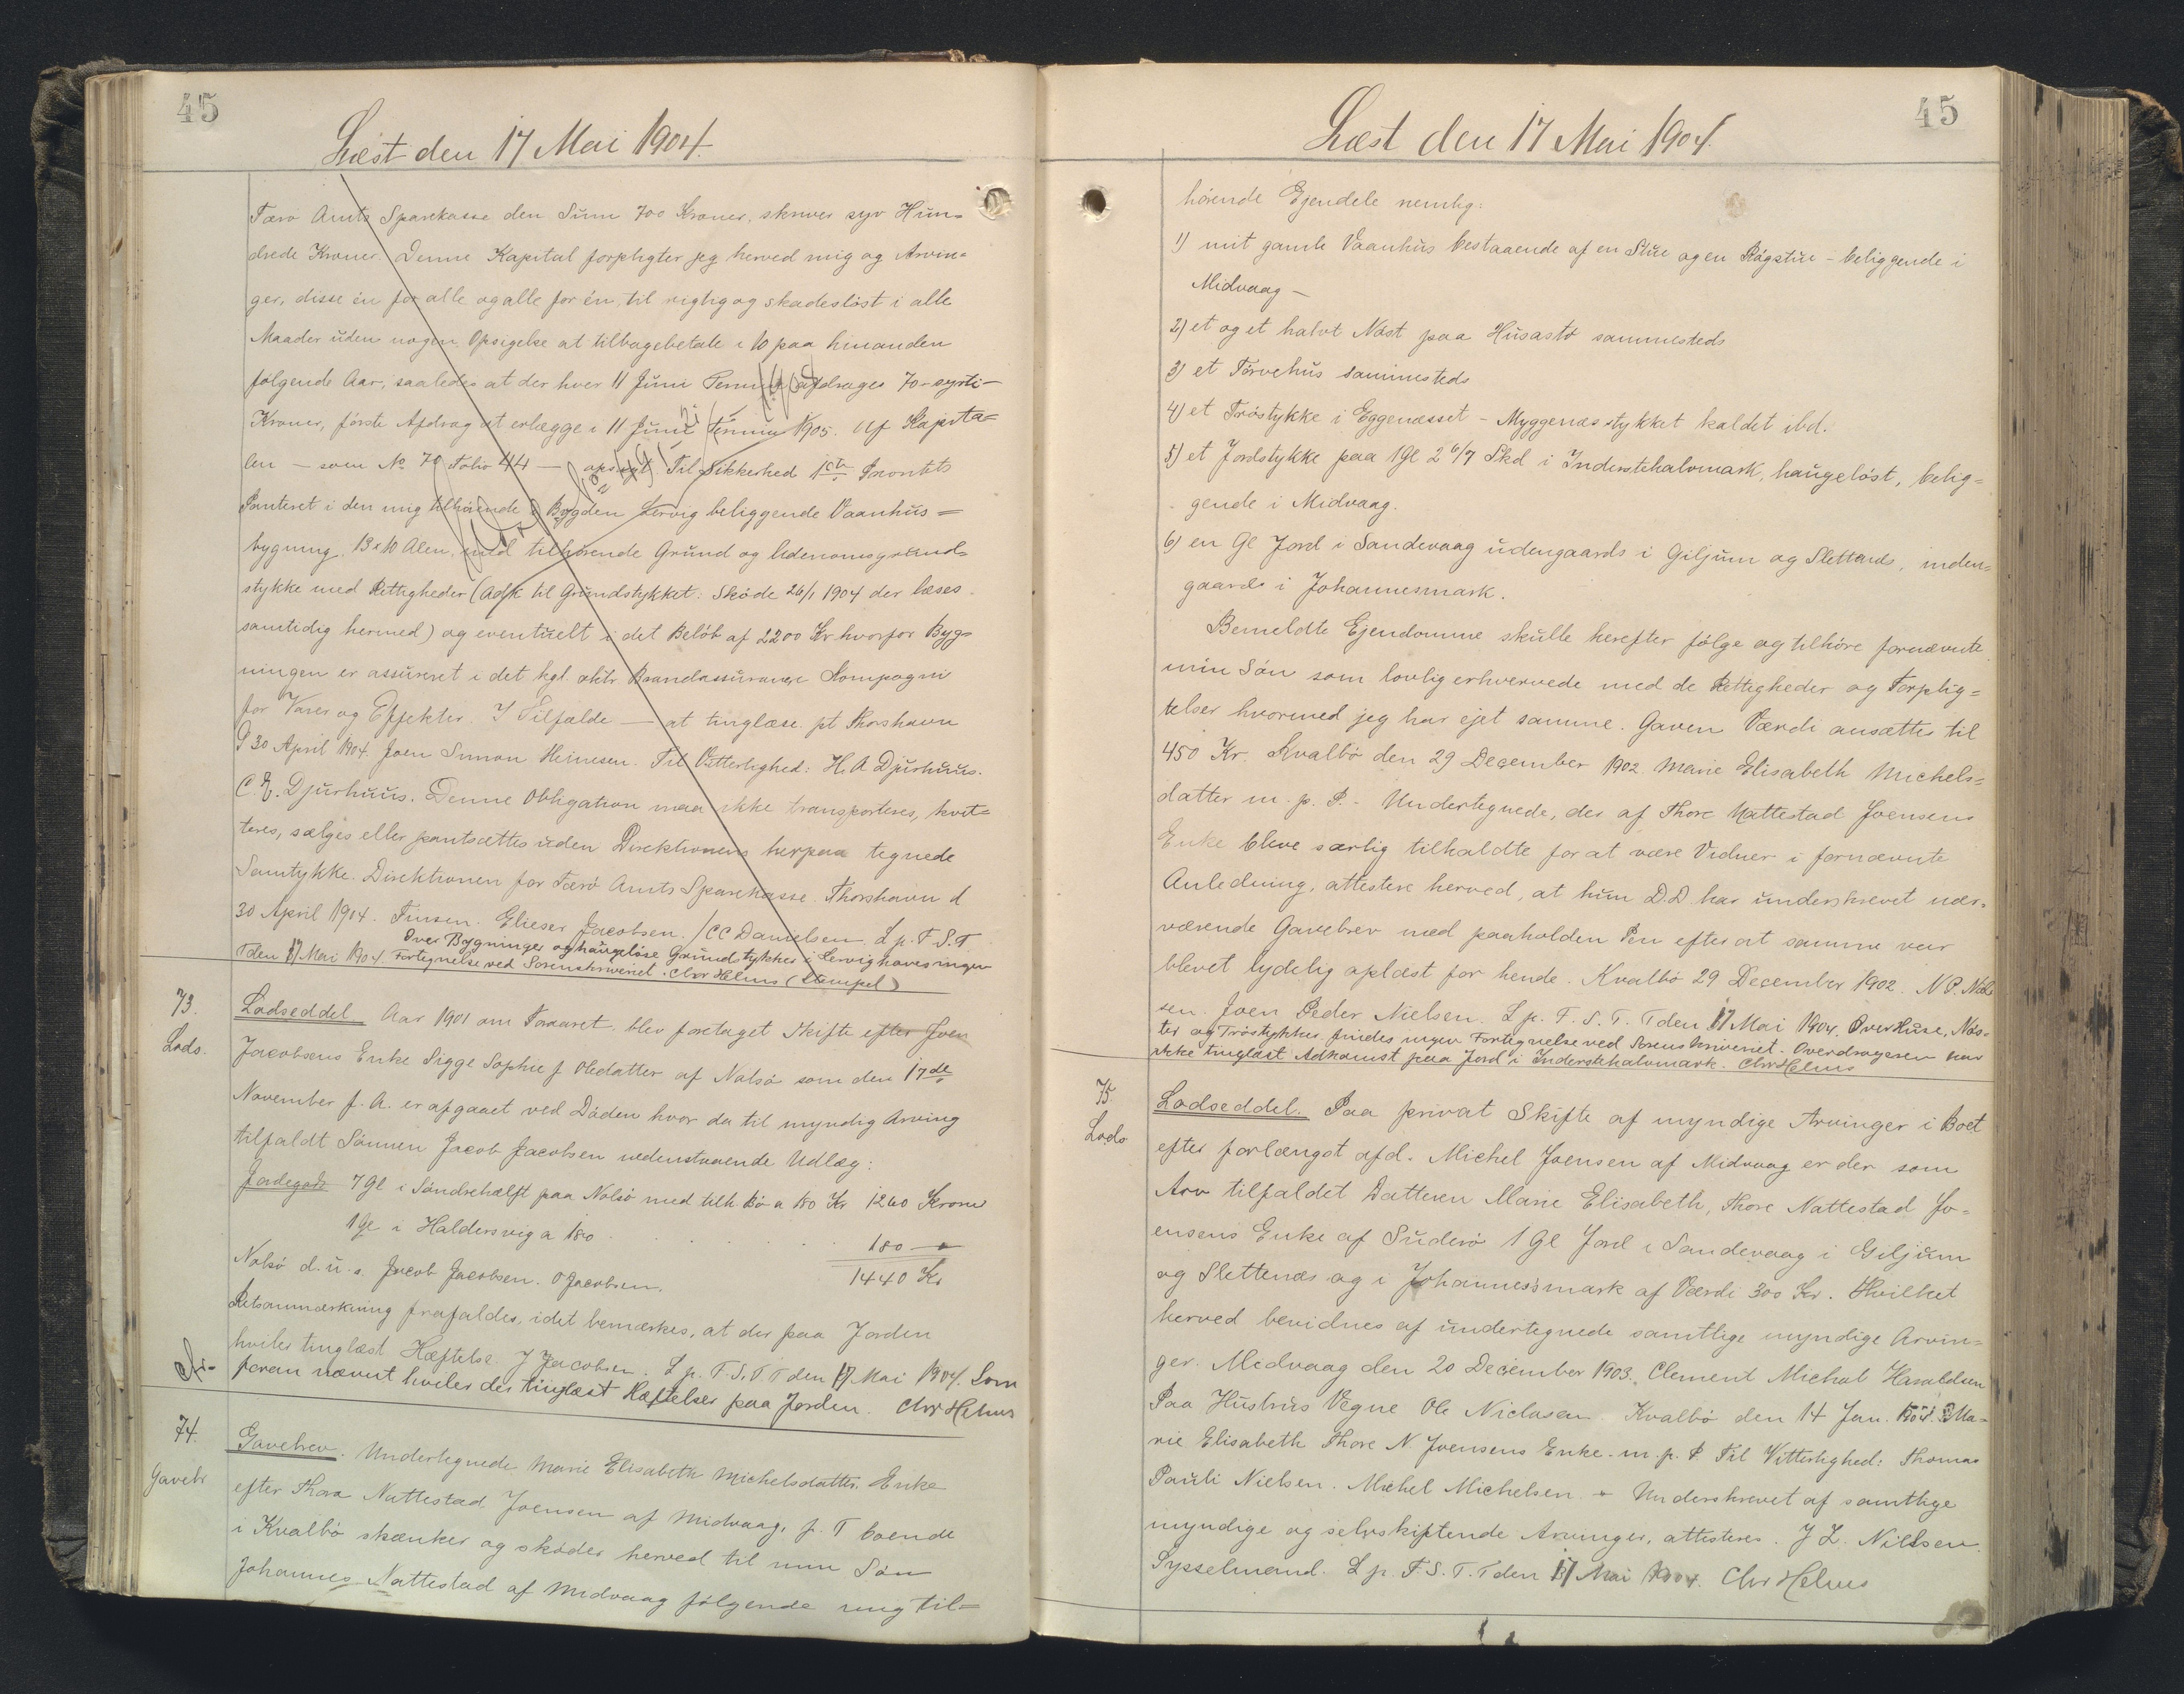 45
Læst den 17 Mai 1904.
Færø Amts Sparekasse den Sum 700 Kroner, skriver syv Hun-
drede Kroner. Denne Kapital forpligter jeg herved mig og Arvin=
ger, disse én for alle og alle for én, til rigtig og skadesløst i alle
Maader uden nogen Opsigelse at tilbagebetale i 10 paa hinanden
følgende Aar, saaledes at der hver 11 Juni Termin afdrages 70 - syvti -
Kroner, første Afdrag at erlægge i 11 Juni Termin 1905. Af Kapita=
len - som No 70 Folio 44 - opsagt Til Sikkerhed 1ste Prioritets
Panteret i den mig tilhørende i Bygden Lervig beliggende Vaanhus=
bygning, 13 x 10 Alen, med tilhørende Grund og udenomsgrund-
stykke med Rettigheder (Adk til Grundstykket: Skøde 26/1 1904 der læses
samtidig hermed) og eventuelt i det Beløb af 2200 Kr hvorfor Byg-
ningen er assureret i det kgl. oktr Brandassurance Kompagni
for Varer og Effekter. I Tilfælde - at tinglæse. pt Thorshavn
d 30 April 1904. Joen Simon Heinesen. Til Vitterlighed: H. A Djurhuus.
C. E. Djurhuus. Denne Obligation maa ikke transporteres, kvit=
teres, sælges eller pantsættes uden Direktionens herpaa tegnede
Samtykke. Direktionen for Færø Amts Sparekasse. Thorshavn d
30 April 1904. Finsen. Elieser Jacobsen. / CC Danielsen L p. F. S. T
Over Bygninger og haugeløse Grundstykker i Lervig haves ingen
T den 17 Mai 1904 Fortegnelse ved Sorenskriveriet. Chr Helms (Stempel)
73. Lodseddel Aar 1901 om Foraaret blev foretaget Skifte efter Joen
Lods. Jacobsens Enke Sigge Sophie f Oledatter af Nolsø som den 17de
November f. A. er afgaaet ved Døden hvor da til myndig Arving
tilfaldt Sønnen Jacob Jacobsen nedenstaaende Udlæg:
Jordegods 7 Gl i Søndrehalft paa Nolsø med tilh. Bø a 180 Kr 1260 Kroner
1 Gl i Haldersvig a 180 . . . . . . 180 -
Nolsø d. u. s. Jacob Jacobsen. O Jacobsen. 1440 Kr
Retsanmærkning frafaldes, idet bemærkes, at der paa Jorden
hviler tinglæst Hæftelse. J Jacobsen. L p. F. S. T. T den 17 Mai 1904. Som
foran nævnt hviler der tinglæst Hæftelser paa Jorden. Chr Helms
74. Gavebrev. Undertegnede Marie Elisabeth Michelsdatter, Enke
Gavebr efter Thore Nattestad Joensen af Midvaag, p. T boende
i Kvalbø skænker og skøder herved til min Søn
Johannes Nattestad af Midvaag følgende mig til=
45
Læst den 17 Mai 1904.
hørende Ejendele nemlig:
1) mit gamle Vaanhus bestaaende af en Stue og en Røgstue - beliggende i
Midvaag -
2) et og et halvt Nøst paa Husastø sammesteds
3) et Tørvehus sammesteds
4) et Trøstykke i Eggenæsset - Myggenæsstykket kaldet ibd.
5) et Jordstykke paa 1 Gl 2 6/7 Skd i Inderstehalvmark, haugeløst, belig=
gende i Midvaag.
6) en Gl Jord i Sandevaag udengaards i Giljum og Slettenæs, inden=
gaards i Johannesmark.
Bemeldte Ejendomme skulle herefter følge og tilhøre fornævnte
min Søn som lovlig erhvervede med de Rettigheder og Forplig=
telser hvormed jeg har ejet samme. Gaven Værdi ansættes til
450 Kr. Kvalbø den 29 December 1902. Marie Elisabeth Michels=
datter m. p. P. - Undertegnede, der af Thore Nattestad Joensens
Enke bleve særlig tilkaldte for at være Vidner i fornævnte
Anledning, attestere herved, at hun D.D. har underskrevet nær-
værende Gavebrev med paaholden Pen efter at samme var
blevet tydelig oplæst for hende. Kvalbø 29 December 1902. N P. Niel
sen. Joen Peder Nielsen. L p. F. S. T. T den 17 Mai 1904. Over Huse, Nøs-
ter og Trøstykker findes ingen Fortegnelse ved Sorenskriveriet. Overdrageren har
ikke tinglæst Adkomst paa Jord i Inderstehalvmark. Chr Helms
75. Lodseddel. Paa privat Skifte af myndige Arvinger i Boet
Lods efter forlængst afd. Michel Joensen af Midvaag er der som
Arv tilfaldet Datteren Marie Elisabeth, Thore Nattestad Jo-
ensens Enke af Suderø 1 Gl Jord i Sandevaag i Giljum
og Slettenæs og i Johannessmark af Værdi 300 Kr. Hvilket
herved bevidnes af undertegnede samtlige myndige Arvin-
ger. Medvaag den 20 December 1903. Clement Michal Haraldsen
Paa Hustrus Vegne Ole Niclasen. Kvalbø den 14 Jan. 1904. Ma-
rie Elisabeth Thore N. Joensens Enke. m. p. P. Til Vitterlighed: Thomas
Pauli Nielsen. Michel Michelsen. + Underskrevet af samtlige
myndige og selvskiftende Arvinger, attesteres. J Z. Nielsen.
Sysselmand. L p. F. S. T. T den 17 Mai 1904. Chr Helms